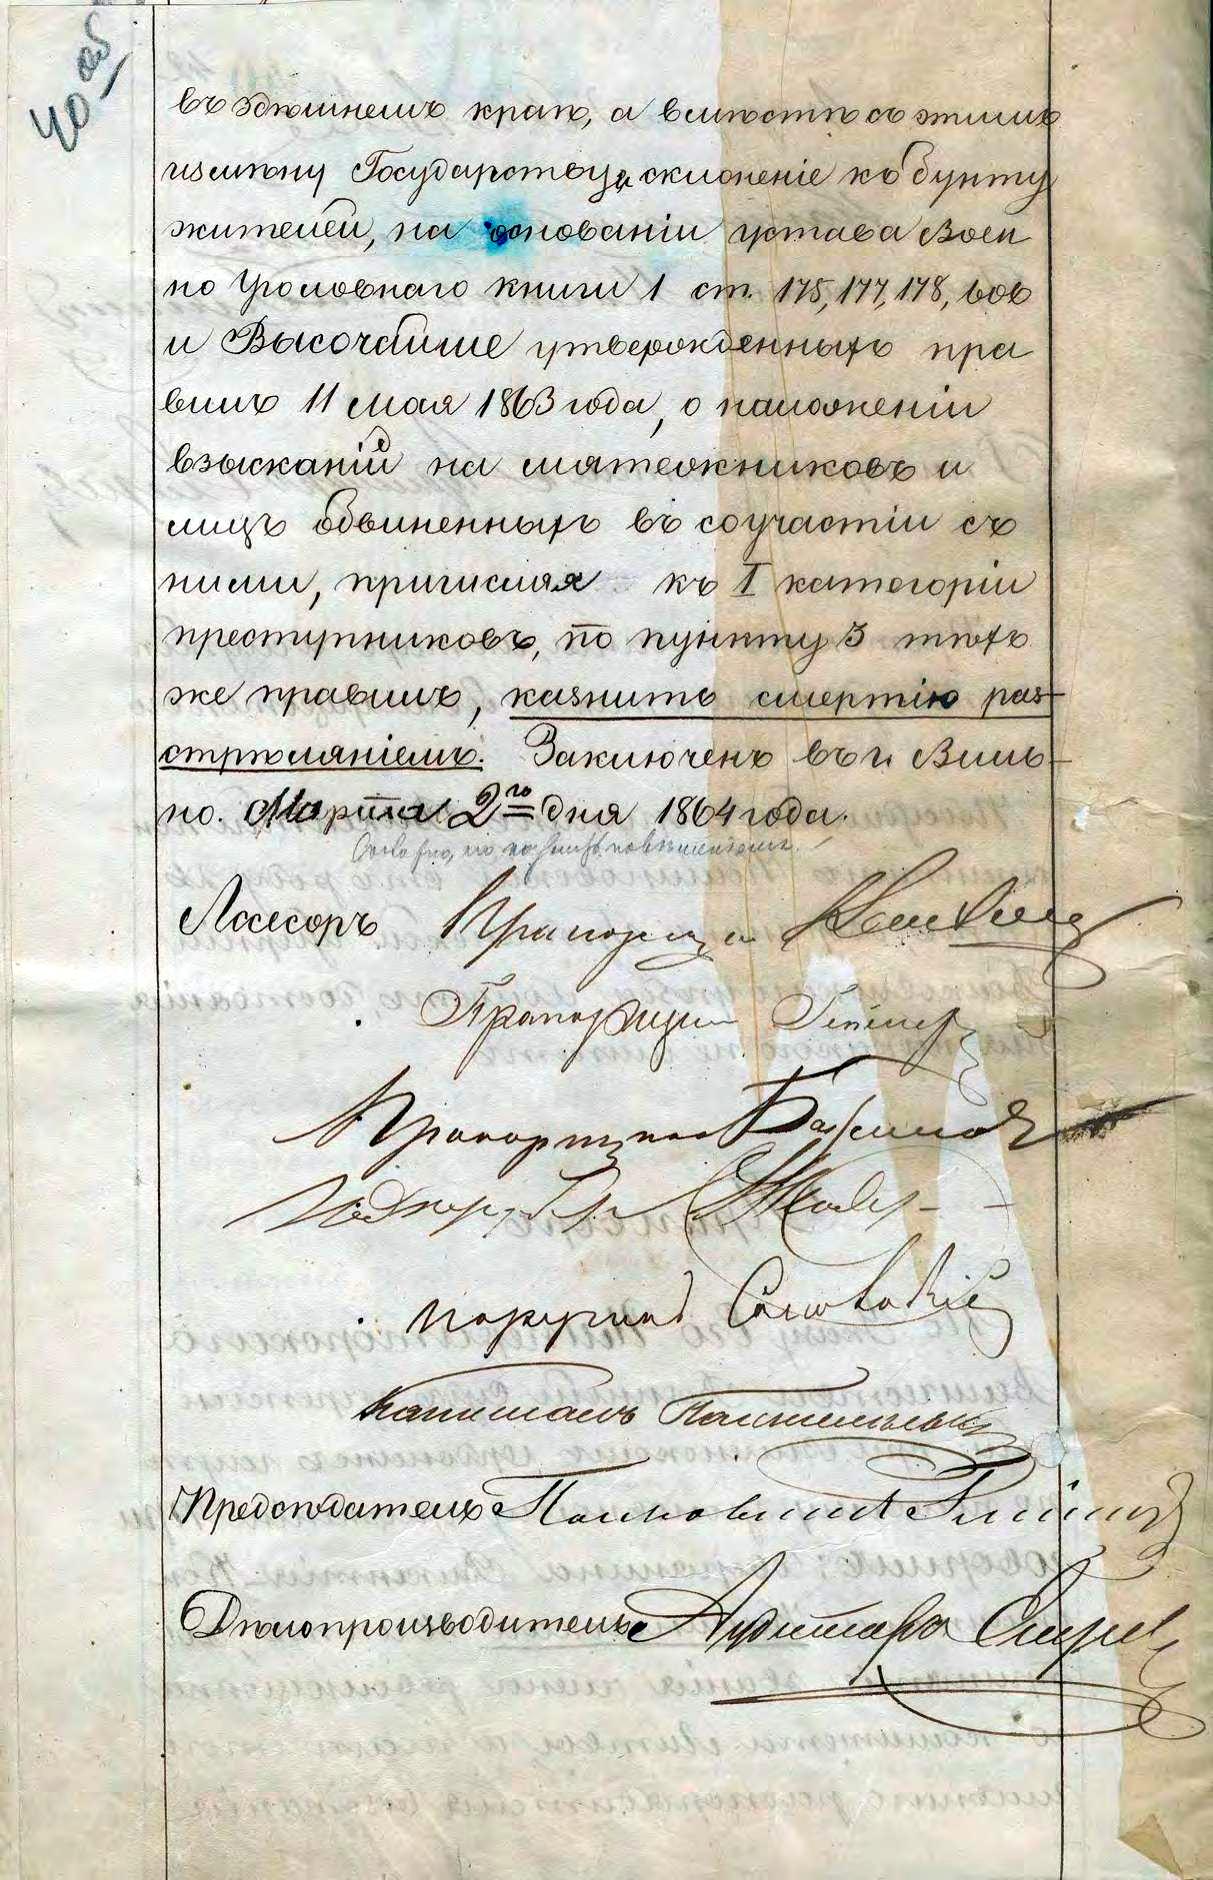 40 об
въ здѣшнемъ краѣ, а вмѣстѣ съ этимъ
измѣну Государству и склоненіе къ бунту
жителей, на основаніи устава Воен
но Уголовнаго книги 1 ст. 175, 177, 178,
и Высочайше утвержденныхъ пра
вилъ 11 мая 1863 года, о наложеніи
взысканій на мятежниковъ и
лицъ обвиненныхъ въ соучастіи съ
ними, причисляя къ I категоріи
преступниковъ, по пункту 3 тѣхъ
же правилъ, казнить смертію раз-
стрѣляніемъ. Заключенъ въ г. Виль-
но. Марта 2го дня 1864 года.
но казнить повѣшеніемъ.
Ассесоръ Прапорщикъ
Прапорщикъ
Прапорщикъ
Поручикъ
Капитанъ
Предсѣдатель Полковникъ
Дѣлопроизводитель Аудиторъ